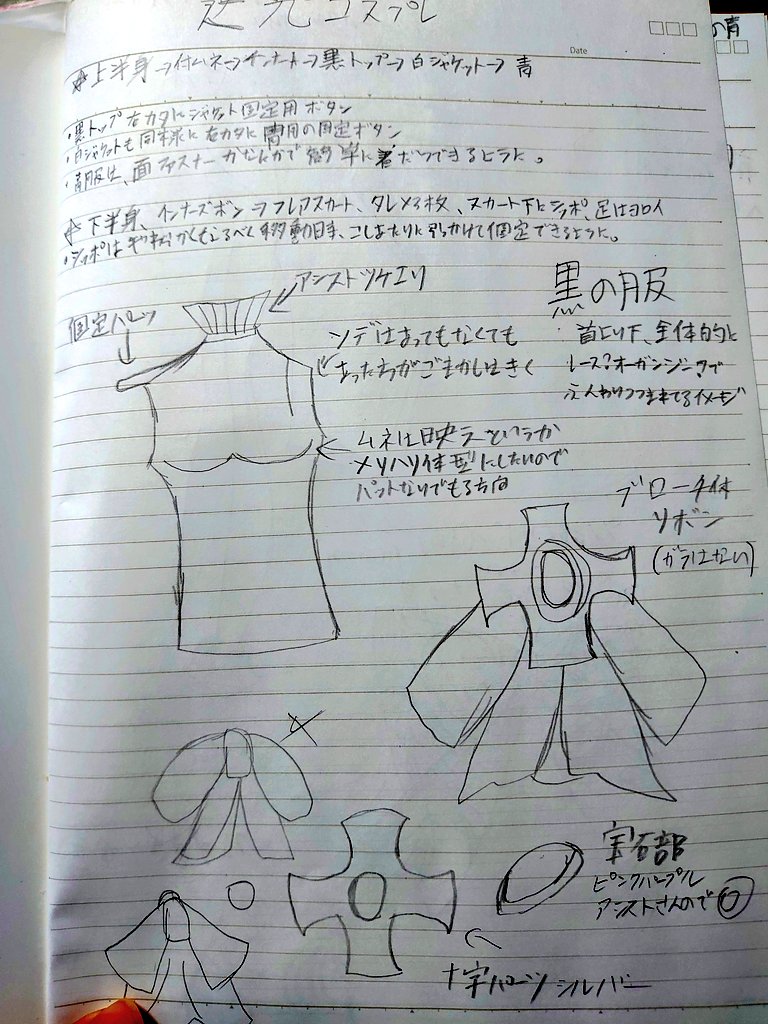 コスプレ
Date
の青
☆上半身→付ムネ→インナー→黒トップ→白ジャケット→青
・黒トップ右カタにジャケット固定用ボタン
・白ジャケットも同様に右カタに青用の固定ボタン
・青服は、面ファスナーかなんかで簡単に着だつできるように。
☆下半身、インナーズボン→フレアスカート、タレメ3枚、スカート下にシッポ、足はヨロイ
・シッポは なるべく移動時、こしあたりに引っかけて固定できるように。
アシストツケエリ
固定パーツ
黒の服
ソデはあってもなくても
あった方がごまかしはきく
首より下、全体的に
レース?オーガンジー?で
ふんわりつつまれてるイメージ
ムネは映えというか
メリハリ体型にしたいので
パットなしでもる方向
ブローチ付
リボン
(ガラはない)
宝石部
ピンクパープル
アシストさんので
十字パーツ シルバー